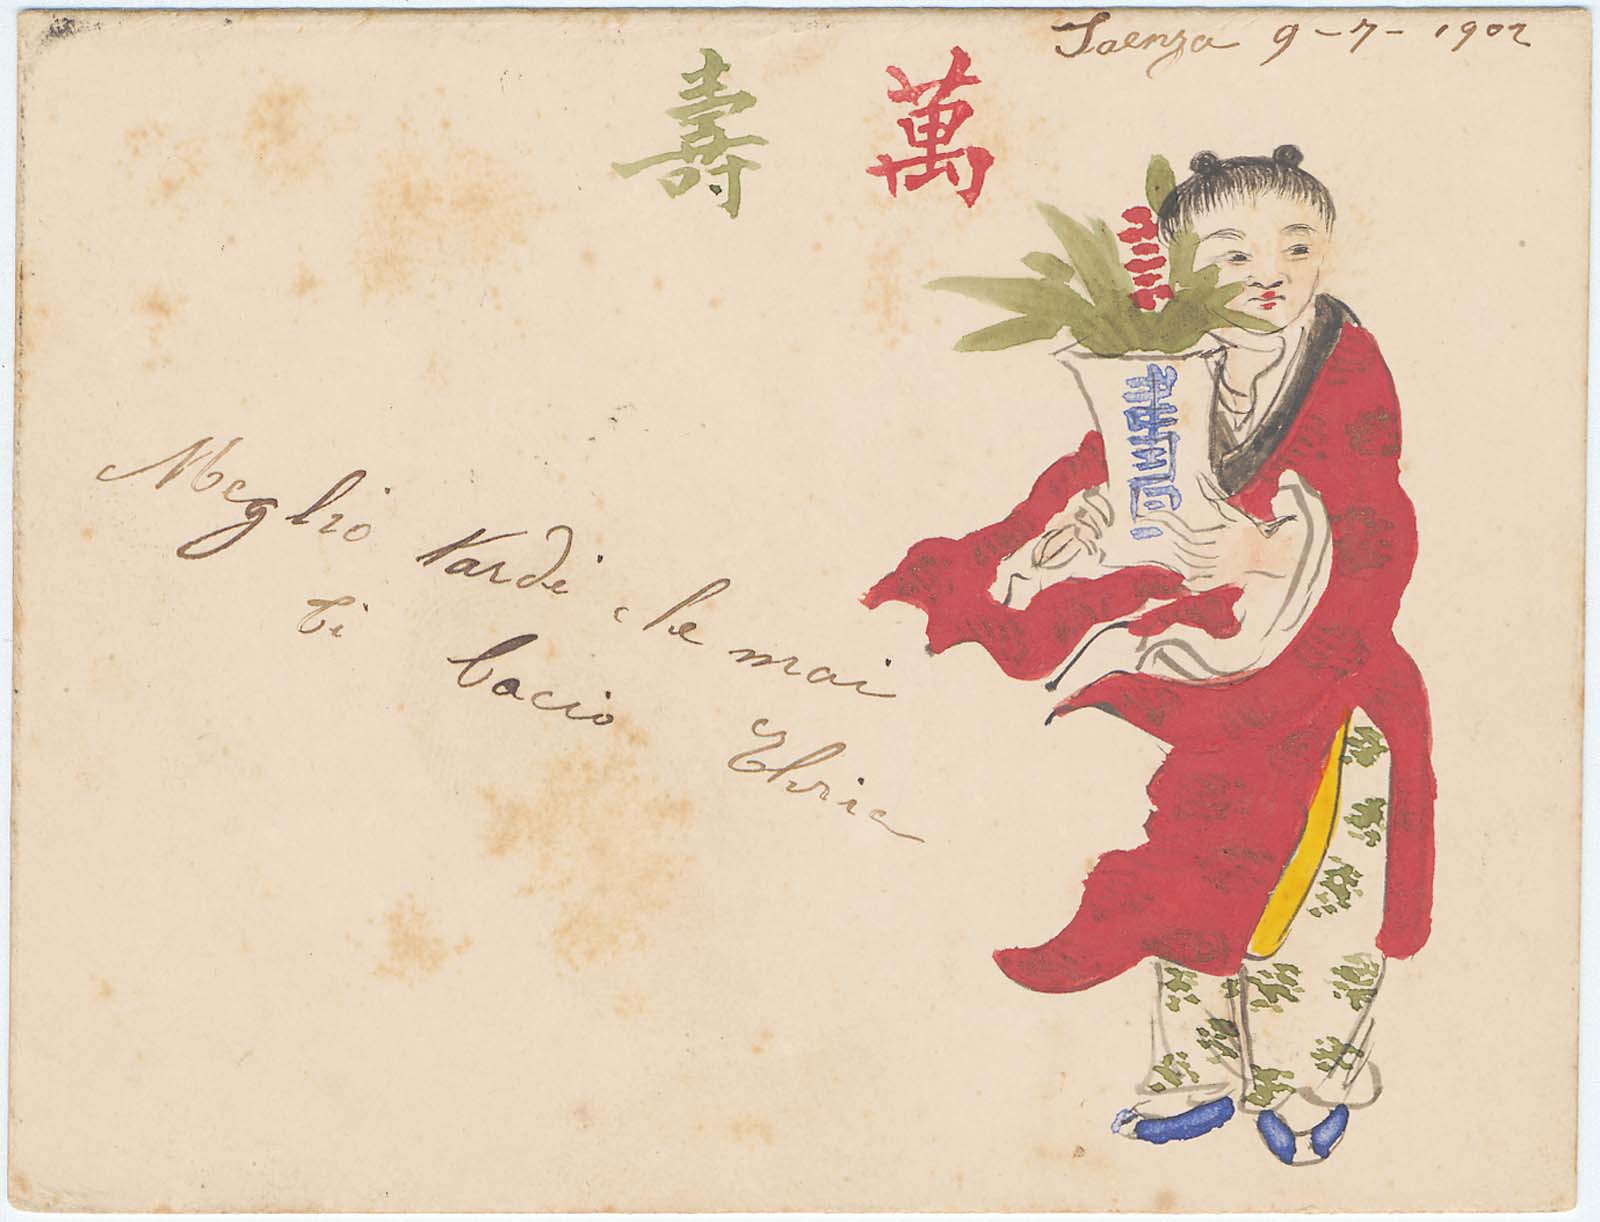 Faenza 9-7-1902
萬壽
Meglio tardi che mai
ti bacio Elvira